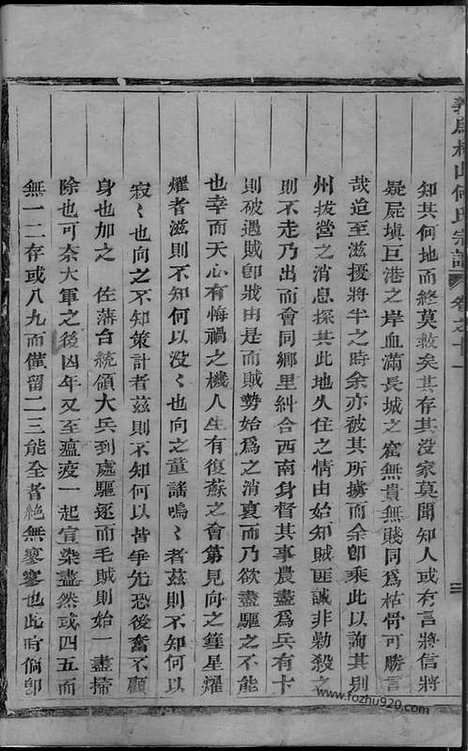 義烏椒山何氏宗譜 卷之十一
知其何地而終莫救矣其存其沒家莫聞知人或有言將信將
疑屍填巨港之岸血滿長城之窟無貴無賤同為枯骨可勝言
哉迨至滋擾將半之時余亦被其所擄而余即乘此以詢其別
州拔營之消息探其此地久住之情由始知賊匪誠非勦殺之
則不走乃出而會同鄉里糾合西南身督其事農盡為兵有卡
則破遇賊即戕由是而賊勢始為之消衰而乃欲盡驅之不能
也幸而天心有復機人生有復蘇之會第見向之鋒星耀
耀者滋則不知何以没〻也向之童謠嗚〻者茲則不知何以
寂〻也向之不知策計者茲則不知何以皆爭先恐後奮不顧
身也加之 佐藩台統領大兵到處驅逐而毛賊則始一盡掃
除也可奈大軍之後凶年又至瘟疫一起宣染盡然或四五而
無一二存或八九而僅留二三能全者絕無寥寥也此時倘卽
三
www.fozhu920.com